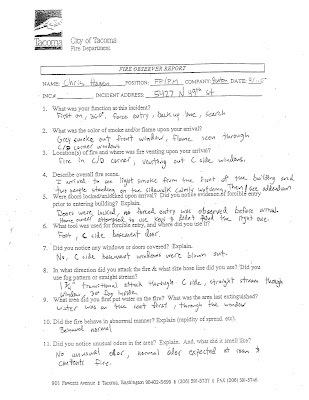 Tacoma
City of Tacoma
Fire Department
FIRE OBSERVER REPORT
NAME: Chris Hagen POSITION: FF/PM COMPANY: DATE:
INC# INCIDENT ADDRESS: 5427 N 49th St
1. What was your function at this incident?
First on, 360°, force entry, back up line, search
2. What was the color of smoke and/or flame upon your arrival?
Grey smoke out front window, flame seen through
C/D corner windows
3. Location(s) of fire and where was fire venting upon your arrival?
Fire in C/D corner, venting out C side windows.
4. Describe overall fire scene.
I arrived to see light smoke from the front of the building and
two people standing on the sidewalk calmly watching. Then / see addendum
5. Were doors locked/unlocked upon arrival? Did you notice evidence of forcible entry
prior to entering building? Explain.
Doors were locked, no forced entry was observed before arrival.
Home owner attempted to use keys & didn't find the right one.
6. What tool was used for forcible entry, and where did you use it?
Foot, C side basement door.
7. Did you notice any windows or doors covered? Explain.
No, C side basement windows were blown out.
8. In what direction did you attack the fire & what size hose line did you use? Did you
use fog pattern or straight stream?
1 3/4" transitional attack through C side, straight stream through
window, 30° fog inside.
9. What area did you first put water on the fire? What was the area last extinguished?
water was on the roof first, through the window
10. Did the fire behave in abnormal manner? Explain (rapidity of spread, etc).
normal
11. Did you notice unusual odors in the area? Explain. And, what did it smell like?
No unusual odor, normal odor expected at room &
contents fire.
901 Fawcett Avenue Tacoma, Washington 98402-5699 (206) 591-5737 FAX (206) 591-5746